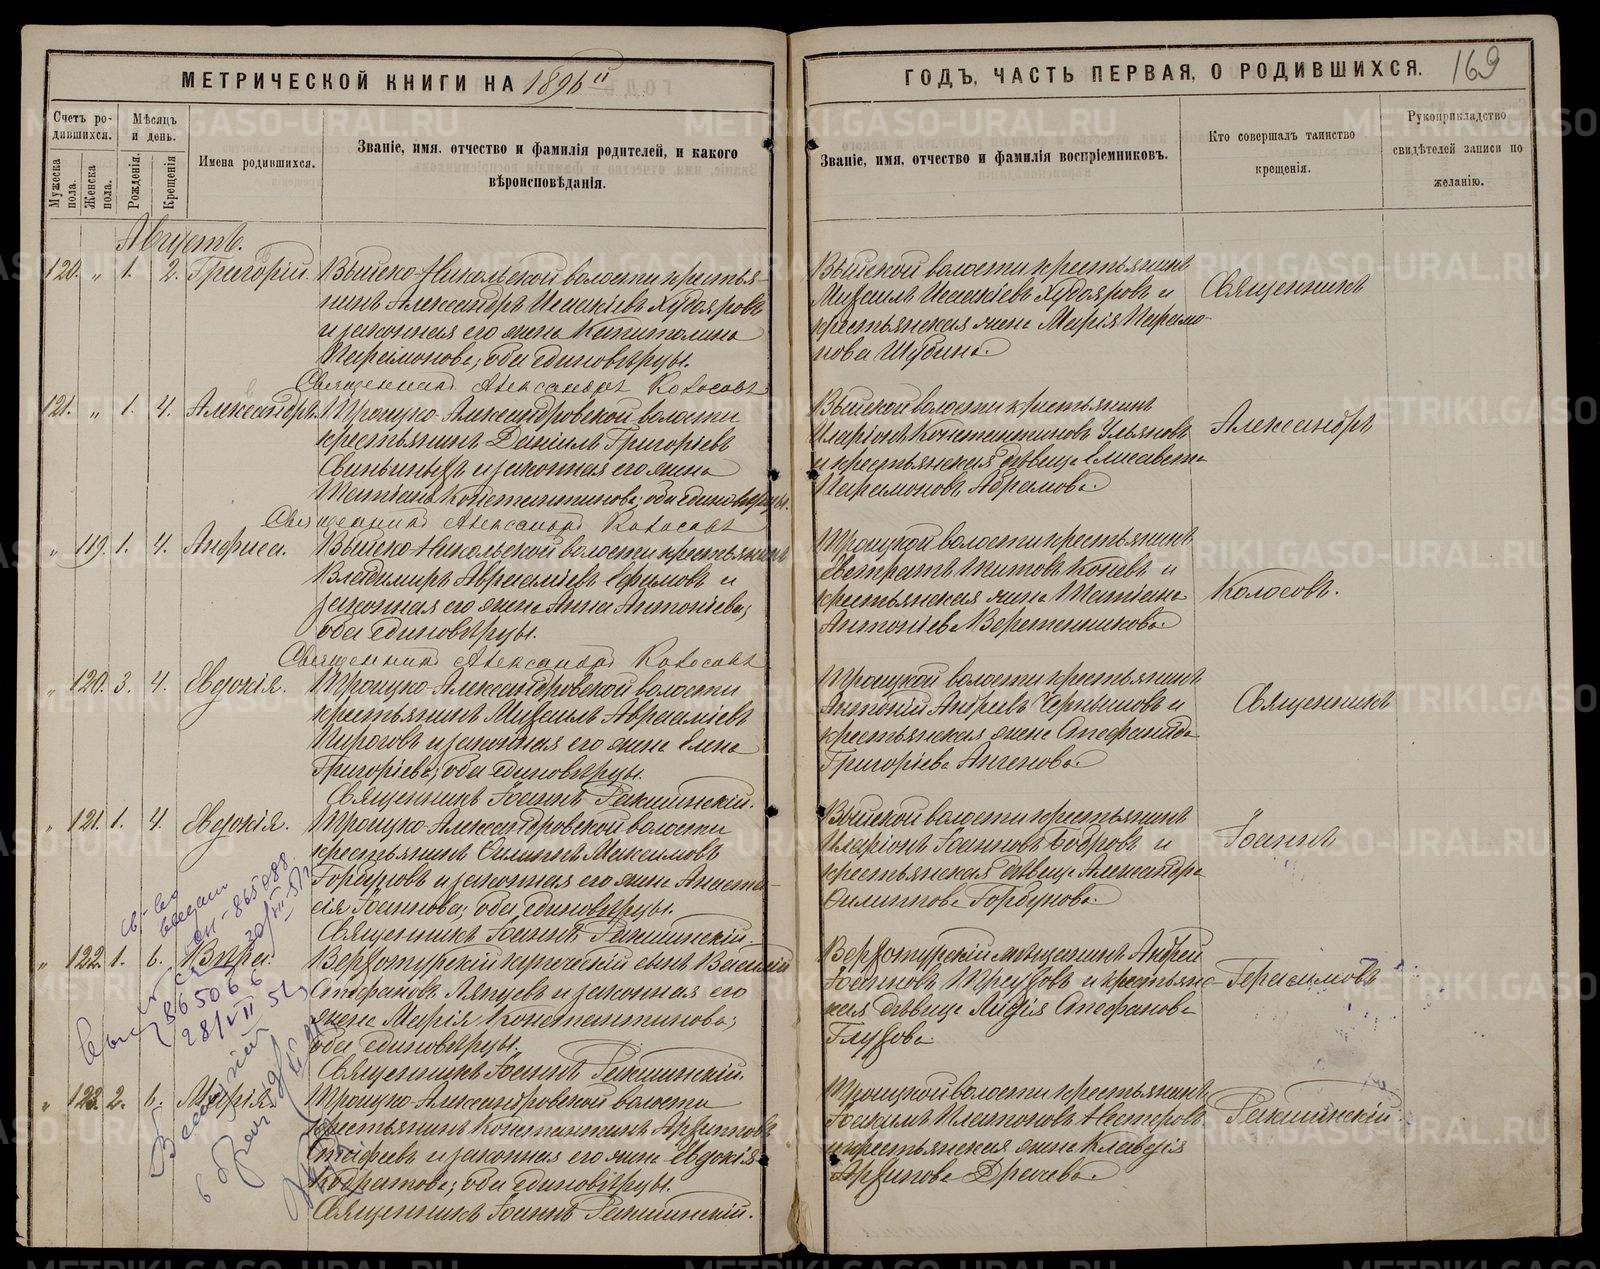 МЕТРИЧЕСКОЙ КНИГИ НА 1896й
ГОДЪ, ЧАСТЬ ПЕРВАЯ, О РОДИВШИХСЯ.
169
Счетъ ро-
дившихся.
Мужеска пола.
Женска пола.
Мѣсяцъ
и день.
Рожденія.
Крещенія
Имена родившихся.
Званіе, имя, отчество и фамилія родителей, и какого
вѣроисповѣданія.
Званіе, имя, отчество и фамилія воспріемниковъ.
Кто совершалъ таинство
крещенія.
Рукоприкладство
свидѣтелей записи по
желанію.
Августъ.
120. " 1. 2. Григорій.
Выйско-Никольской волости крестья-
нинъ Александръ Исаакіевъ Худояровъ
и законная его жена Капитолина
Парамонова; оба единовѣрцы.
Священникъ Александръ Колосовъ
Выйской волости крестьянинъ
Михаилъ Исаакіевъ Худояровъ и
крестьянская жена Марія Парамо-
нова Шубина.
Священникъ
121. " 1. 4. Александръ
Троицко-Александровской волости
крестьянинъ Даніилъ Григоріевъ
и законная его жена
Татіана Константинова; оба единовѣрцы.
Священникъ Александръ Колосовъ
Выйской волости крестьянинъ
Иларіонъ Константиновъ Ульяновъ
и крестьянская дѣвица Елисавета
Парамонова Абрамова.
Александръ
" 119. 1. 4. Анфиса.
Выйско-Никольской волости крестьянинъ
Владимиръ Авраамиевъ Ефимовъ и
законная его жена Анна Антоніева;
оба единовѣрцы.
Священникъ Александръ Колосовъ
Троицкой волости крестьянинъ
Евстратъ Титовъ и
крестьянская жена Татіана
Антоніева Веретенникова.
Колосовъ.
" 120. 3. 4. Евдокія.
Троицко-Александровской волости
крестьянинъ Михаилъ Авраамиевъ
Пироговъ и законная его жена Елена
Григоріева; оба единовѣрцы.
Священникъ Іоаннъ
Троицкой волости крестьянинъ
Антоній Андреевъ и
крестьянская жена Стефанида
Григоріева
Священникъ
" 121. 1. 4. Евдокія.
Троицко-Александровской волости
крестьянинъ Филиппъ Максимовъ
Горбуновъ и законная его жена Анаста-
сія Іоаннова; оба единовѣрцы.
Священникъ Іоаннъ
Выйской волости крестьянинъ
Иларіонъ Іоанновъ Бобровъ и
крестьянская дѣвица Александра
Филиппова Горбунова.
Іоаннъ
" 122. 1. 6. Вѣра.
Верхотурскій купеческій сынъ Василій
Стефановъ Ляпцевъ и законная его
жена Марія Константинова;
оба единовѣрцы.
Священникъ Іоаннъ
Верхотурскій мѣщанинъ Андрей
Іоанновъ Треуховъ и крестьянс-
кая дѣвица Лидія Стефанова
Глухова
Герасимовъ
" 123. 2. 6. Марія.
Троицко-Александровской волости
крестьянинъ Константинъ Архиповъ
и законная его жена Евдокія
Кодратова; оба единовѣрцы.
Священникъ Іоаннъ
Троицкой волости крестьянинъ
Іоакимъ Платоновъ Нестеровъ
и крестьянская жена Клавдія
Архипова Драчева.
св-во
865088
865066
28/VII 51
METRIKI.GASO-URAL.RU